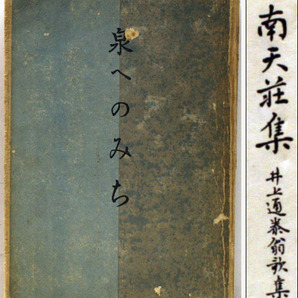 泉へのみち
南天荘集
井上通泰翁歌集